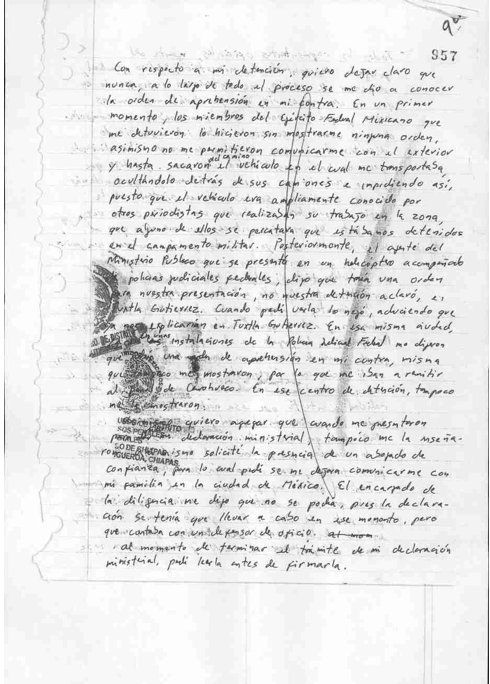 9
957
Con respecto a mi detención, quiero dejar claro que
nunca, a lo largo de todo el proceso se me dio a conocer
la orden de aprehensión en mi contra. En un primer
momento, los miembros del Ejército Federal Mexicano que
me detuvieron lo hicieron sin mostrarme ninguna orden,
asimismo no me permitieron comunicarme con el exterior
y hasta sacaron del camino el vehículo en el cual me transportaba,
ocultándolo detrás de sus camiones e impidiendo así,
puesto que el vehículo era ampliamente conocido por
otros periodistas que realizaban su trabajo en la zona,
que alguno de ellos se percatara que estábamos detenidos
en el campamento militar. Posteriormente, el agente del
Ministerio Público que se presentó en un helicóptero acompañado
policías judiciales federales, dijo que traía una orden
para nuestra presentación, no nuestra detención aclaró, en
Tuxtla Gutiérrez. Cuando pedí verla lo negó, aduciendo que
explicarían en Tuxtla Gutiérrez. En esa misma ciudad,
en unas instalaciones de la Policía Judicial Federal me dijeron
que una orden de aprehensión en mi contra, misma
que mostraron, por lo que me iban a remitir
al de Cerohueco. En ese centro de detención, tampoco
me mostraron.
quiero agregar que cuando me presentaron
declaración ministerial, tampoco me la enseña-
ron solicité la presencia de un abogado de
confianza, para lo cual pedí se me dejara comunicarme con
mi familia en la ciudad de México. El encargado de
la diligencia me dijo que no se podía, pues la declara-
ción se tenía que llevar a cabo en ese momento, pero
que contaba con un defensor de oficio.
al momento de terminar el trámite de mi declaración
ministerial, pedí leerla antes de firmarla.
DO DE CHIAPAS